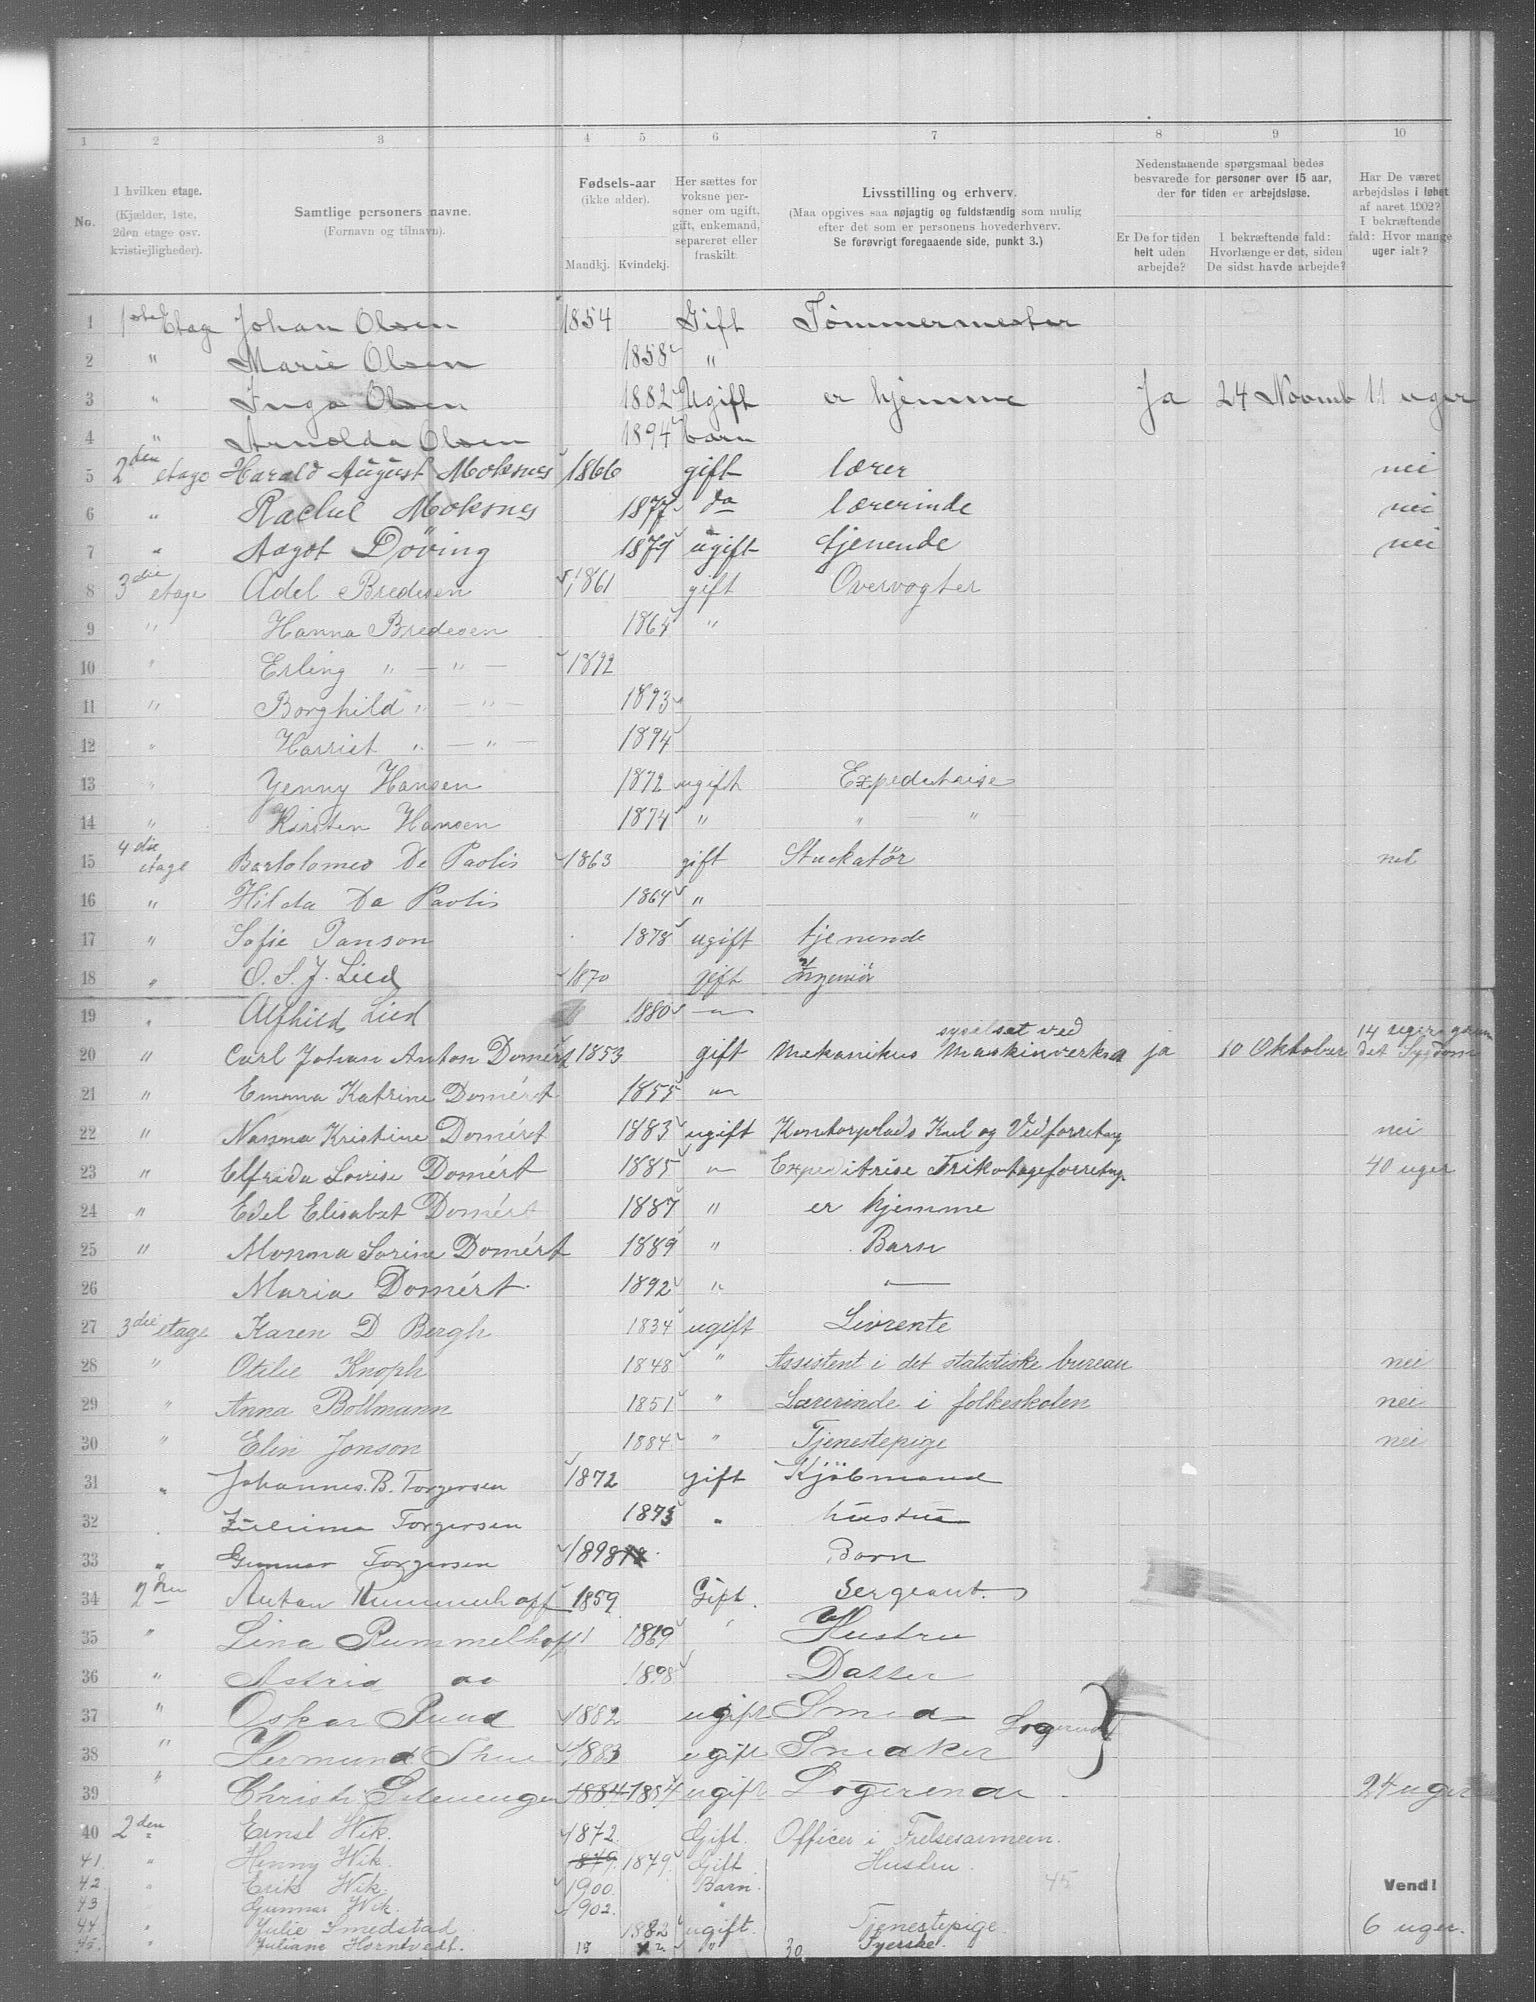 1 2 3 4 5 6 7 8 9 10
No.
I hvilken etage. (Kjælder, 1ste, 2den etage osv. kvistleiligheder).
Samtlige personers navne. (Fornavn og tilnavn).
Fødsels-aar (ikke alder). Mandkj. Kvindekj.
Her sættes for voksne personer om ugift, gift, enkemand, separeret eller fraskilt.
Livsstilling og erhverv. (Maa opgives saa nøjagtig og fuldstændig som mulig efter det som er personens hovederhverv. Se forøvrigt foregaaende side, punkt 3.)
Nedenstaaende spørgsmaal bedes besvarede for personer over 15 aar, der for tiden er arbejdsløse.
Er De for tiden helt uden arbejde?
I bekræftende fald: Hvorlænge er det, siden De sidst havde arbejde?
Har De været arbejdsløs i løbet af aaret 1902? I bekræftende fald: Hvor mange uger ialt?
1 1ste Etage Johan Olsen 1854 Gift Tömmermester
2 " Marie Olsen 1858 "
3 " Inga Olsen 1882 Ugift er hjemme Ja 24 Novmb 11 uger
4 " Arnolda Olsen 1894 barn
5 2den etage Harald August Moksnes 1866 gift lærer nei
6 " Rachel Moksnes 1877 do lærerinde nei
7 " Aagot Döving 1879 ugift tjenende nei
8 3die etage Adel Bredesen 1861 gift Overvogter
9 " Hanna Bredesen 1864 "
10 " Erling " — " — 1892
11 " Borghild " — " — 1893
12 " Harriet " — " — 1894
13 " Jenny Hansen 1872 ugift Expeditrise
14 " Kirsten Hansen 1874 " " "
15 4die etage Bartolomeo De Paolis 1863 gift Stukatør nei
16 " Hilda De Paolis 1864 "
17 " Sofie Janson 1878 ugift tjenende
18 " O. S. J. Lied 1870 gift Ingeniør
19 " Alfhild Lied 1880 —"—
20 " Carl Johan Anton Domért 1853 gift Mekanikus syselsat ved Maskinverksa ja 10 Oktober 14 uger grun det Sygdom
21 " Emma Katrine Domért 1855 —"—
22 " Nanna Kristine Domért 1883 ugift Kontorplads Kul og Vedforretng nei
23 " Elfrida Lovise Domért 1885 —"— Expeditrise Trikotageforretng 40 uger
24 " Edel Elisabet Domért 1887 " er hjemme
25 " Monna Sorine Domért 1889 " Barn
26 Maria Domért 1892 " —"—
27 3die etage Karen D Bergh 1834 ugift Livrente
28 " Otilie Knoph 1848 " Assistent i det statistiske bureau nei
29 " Anna Bollmann 1851 " Lærerinde i folkeskolen nei
30 " Elin Jonson 1884 " Tjenestepige nei
31 " Johannes. B. Torgersen 1872 gift Kjøbmand
32 Torgersen 1873 " hustru
33 " Gunnar Torgersen 1898 Barn
34 2den Anton Rummelhoff 1859 Gift. Sergeant.
35 " Lina Rummelhoff 1869 " Hustru
36 " Astrid 1898 Datter
37 " Oskar Ruud 1882 ugift Smed Logerende
38 " Hermund 1883 ugift Snedker
39 " 1884 1884 ugift Logerende 24 uger
40 2den Ernst Wik. 1872. Gift. Officer i Frelsesarmeen.
41. " Henny Wik. 1879. 1879. Gift. Hustru.
42 " Erik Wik. 1900. Barn. 45
43 Gunnar Wik. 1902. "
Vend!
44. " Julie Smedstad. 1882 ugift. Tjenestepige. 6 uger.
45. " Juliane Horntvedt. " 30 Syerske.